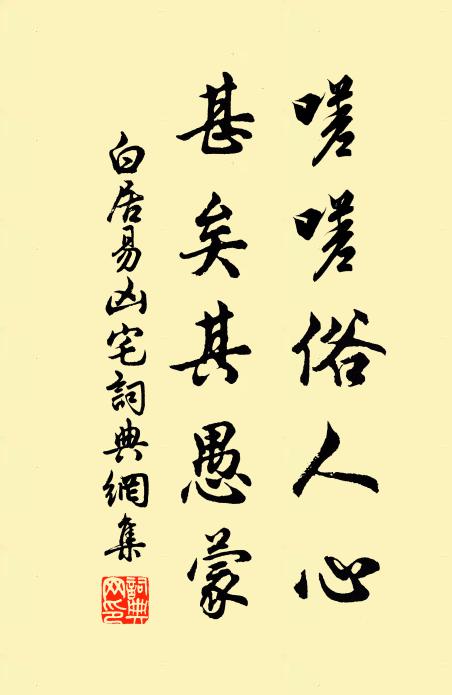 嗟嗟俗人心
甚矣其愚蒙
白居易凶宅詞典網集
詞典网印